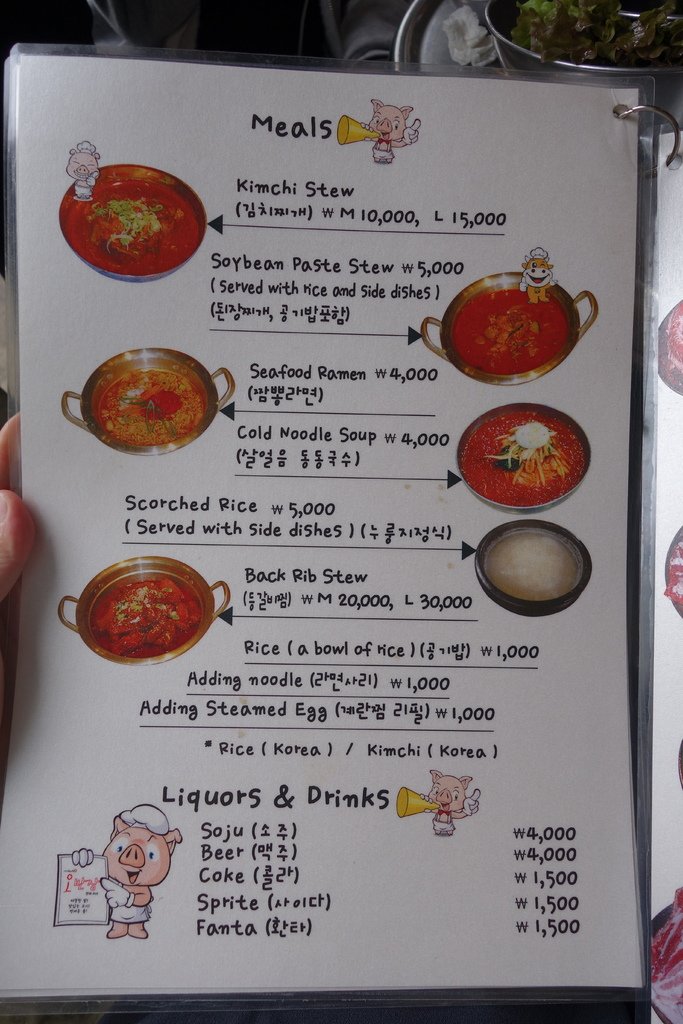 Meals
Kimchi Stew
(김치찌개) ₩ M 10,000, L 15,000
Soybean Paste Stew ₩ 5,000
(Served with rice and side dishes)
(된장찌개, 공기밥포함)
Seafood Ramen ₩ 4,000
(짬뽕라면)
Cold Noodle Soup ₩ 4,000
(살얼음 동동국수)
Scorched Rice ₩ 5,000
(Served with side dishes) (누룽지정식)
Back Rib Stew
(등갈비찜) ₩ M 20,000, L 30,000
Rice (a bowl of rice) (공기밥) ₩ 1,000
Adding noodle (라면사리) ₩ 1,000
Adding Steamed Egg (계란찜 리필) ₩ 1,000
* Rice (Korea) / Kimchi (Korea)
Liquors & Drinks
Soju (소주) ₩4,000
Beer (맥주) ₩4,000
Coke (콜라) ₩ 1,500
Sprite (사이다) ₩ 1,500
Fanta (환타) ₩ 1,500